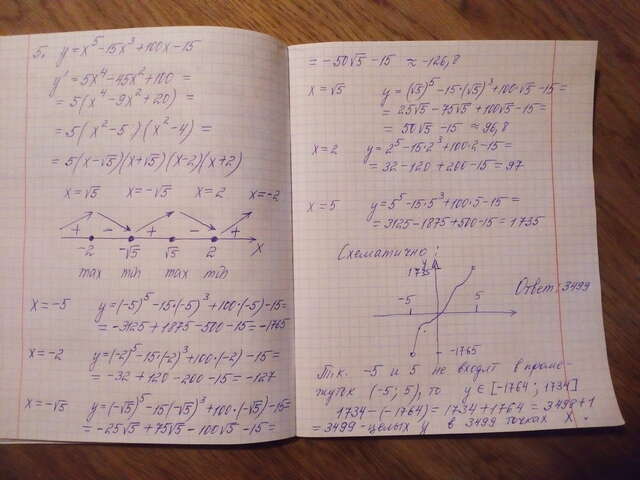 5. y = x⁵ - 15x³ + 100x - 15
y' = 5x⁴ - 45x² + 100 =
= 5(x⁴ - 9x² + 20) =
= 5(x² - 5)(x² - 4) =
= 5(x - √5)(x + √5)(x - 2)(x + 2)
x = √5 x = -√5 x = 2 x = -2
+ - + - +
-2 -√5 √5 2 x
max min max min
x = -5 y = (-5)⁵ - 15·(-5)³ + 100·(-5) - 15 =
= -3125 + 1875 - 500 - 15 = -1765
x = -2 y = (-2)⁵ - 15·(-2)³ + 100·(-2) - 15 =
= -32 + 120 - 200 - 15 = -127
x = -√5 y = (-√5)⁵ - 15(-√5)³ + 100·(-√5) - 15 =
= -25√5 + 75√5 - 100√5 - 15 =
= -50√5 - 15 ≈ -126,8
x = √5 y = (√5)⁵ - 15·(√5)³ + 100·√5 - 15 =
= 25√5 - 75√5 + 100√5 - 15 =
= 50√5 - 15 ≈ 96,8
x = 2 y = 2⁵ - 15·2³ + 100·2 - 15 =
= 32 - 120 + 200 - 15 = 97
x = 5 y = 5⁵ - 15·5³ + 100·5 - 15 =
= 3125 - 1875 + 500 - 15 = 1735
Схематично:
y
-5 5
Ответ: 3499
-1765
Т.к. -5 и 5 не входят в проме-
жуток (-5; 5), то y ∈ [-1764; 1734]
1734 - (-1764) = 1734 + 1764 = 3498 + 1
= 3499 - целых y в 3499 точках x.